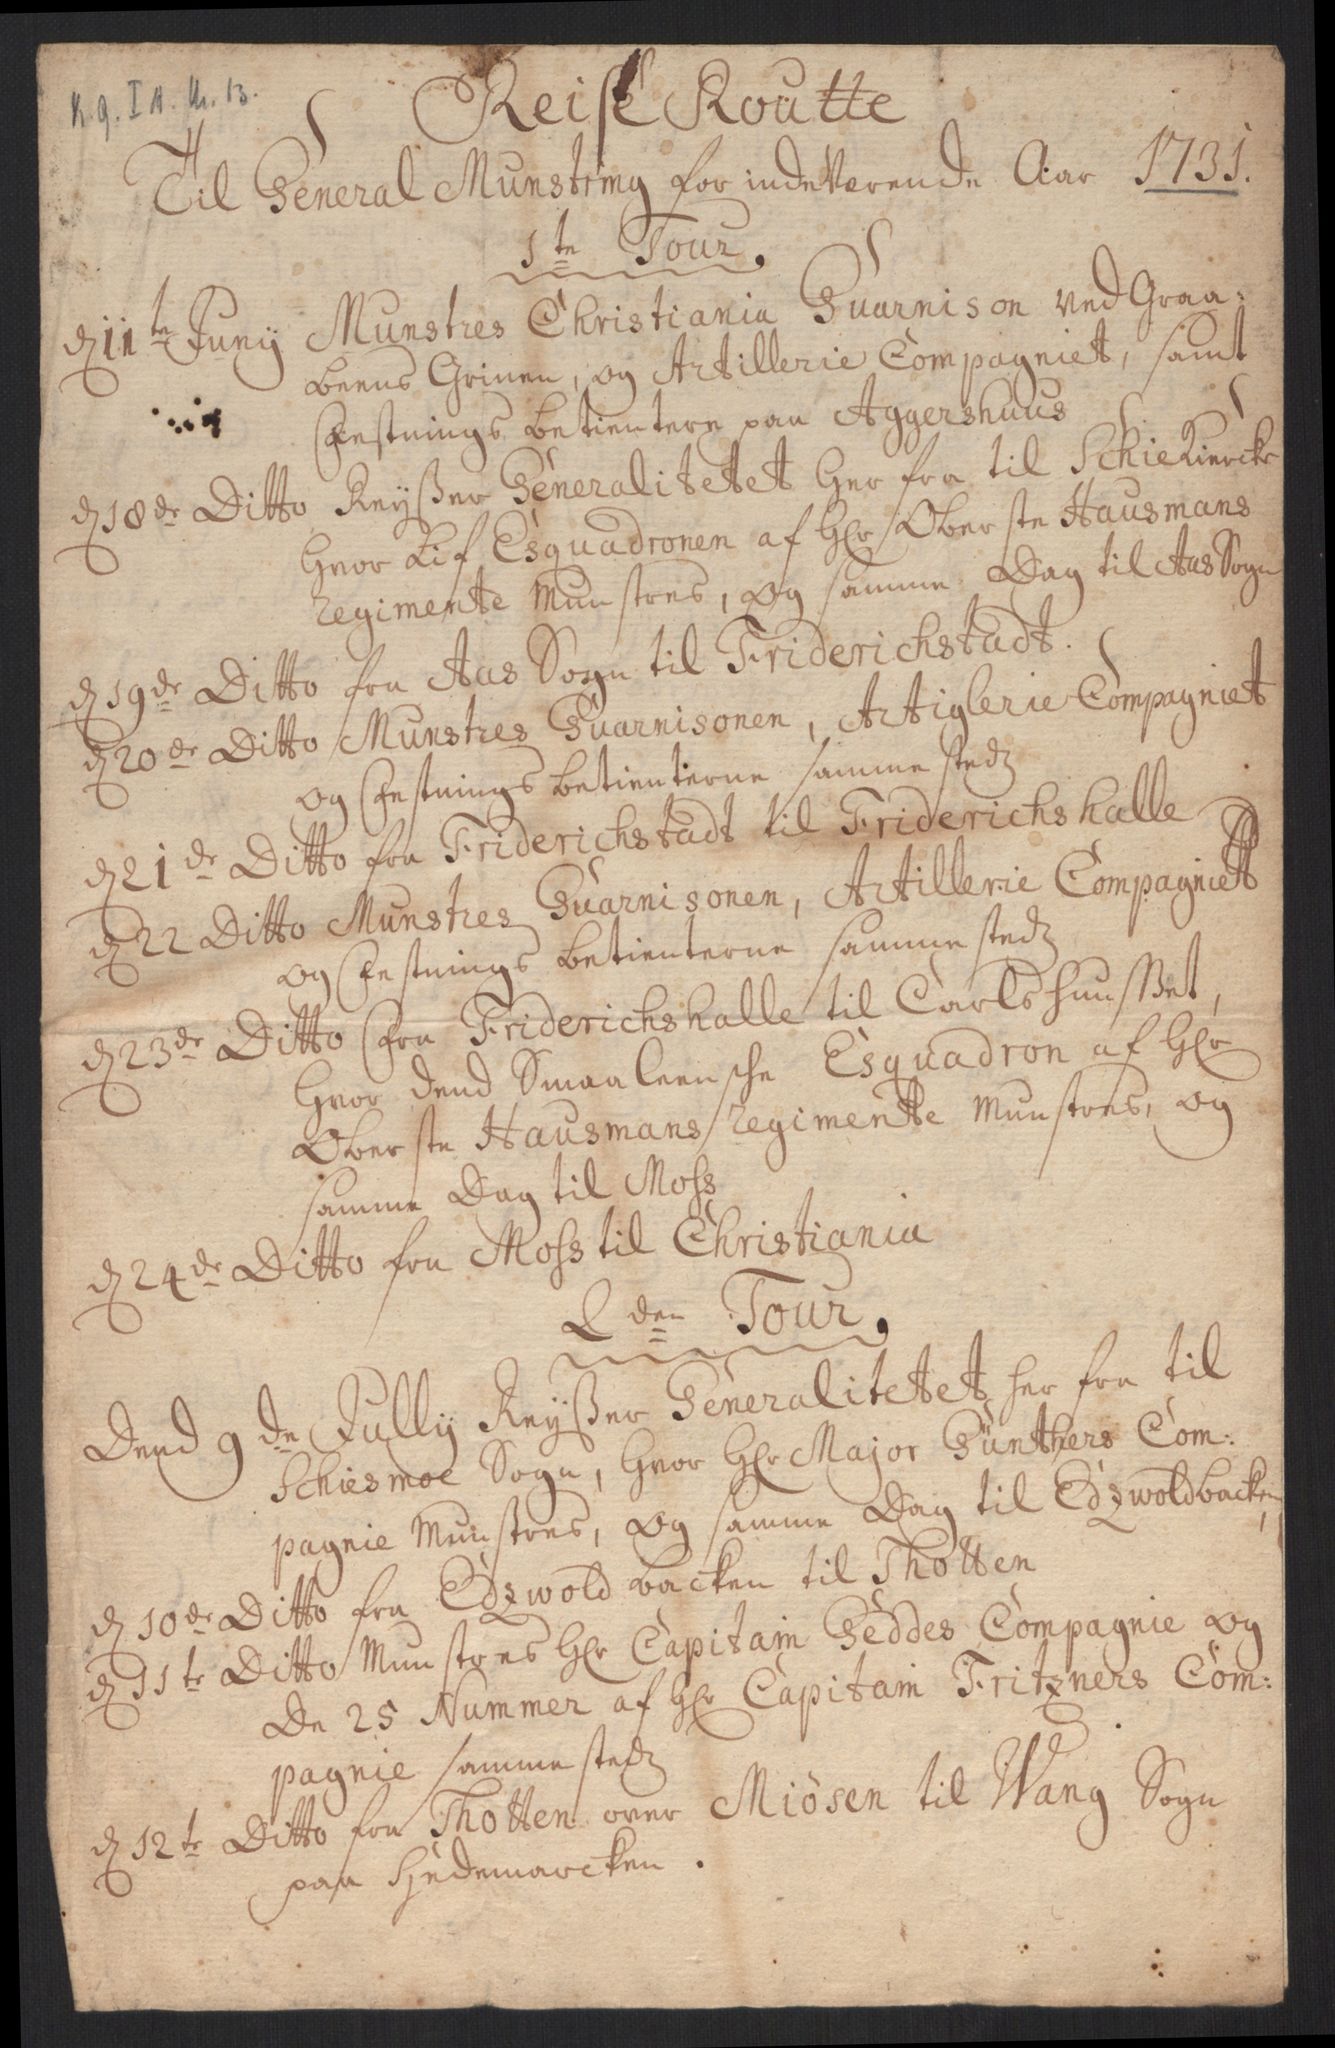 K. g. I A. Nr. 13.
Reise Routte
Til General Munstring for indeVærende Aar 1731.
1te Tour.
d 11te Junij Munstres Christiania Guarnison ved Graa-
beens Grinen, og Artillerie Compagniet, samt
Fæstnings betientere paa Aggershuus
d 18de Ditto Reysser Generalitetet her fra til SchieKiercke
hvor Lif Esquadronen af Hr Oberste Hausmans
regimente Munstres, og samme Dag til Aas Sogn
d 19de Ditto fra Aas Sogn til Friderichstadt.
d 20de Ditto Munstres Guarnisonen, Artiglerie Compagniet
og Fæstnings betienterne sammestedz
d 21de Ditto fra Friderichstadt til Friderichshalle
d 22 Ditto Munstres Guarnisonen, Artillerie Compagniet
og Fæstnings betienterne sammestedz
d 23de Ditto fra Friderichshalle til Carlshuusset,
hvor dend Smaaleensche Esquadron af Hr
Oberste Hausmans regimente Munstres, og
samme Dag til Moss
d 24de Ditto fra Moss til Christiania
2den Tour.
Dend 9de Jullij Reysser Generalitetet her fra til
Schiesmoe Sogn, hvor Hr Major Günthers Com:
pagnie Munstres, og samme Dag til Edzwoldbacken,
d 10de Ditto fra Edzwoldbacken til Thotten
d 11te Ditto Munstres Hr Capitain Geddes Compagnie og
De 25 Nummer af Hr Capitain Fritzners Com:
pagnie sammestedz
d 12te Ditto fra Thotten over Miösen til Wang Sogn
paa Hedemarcken.